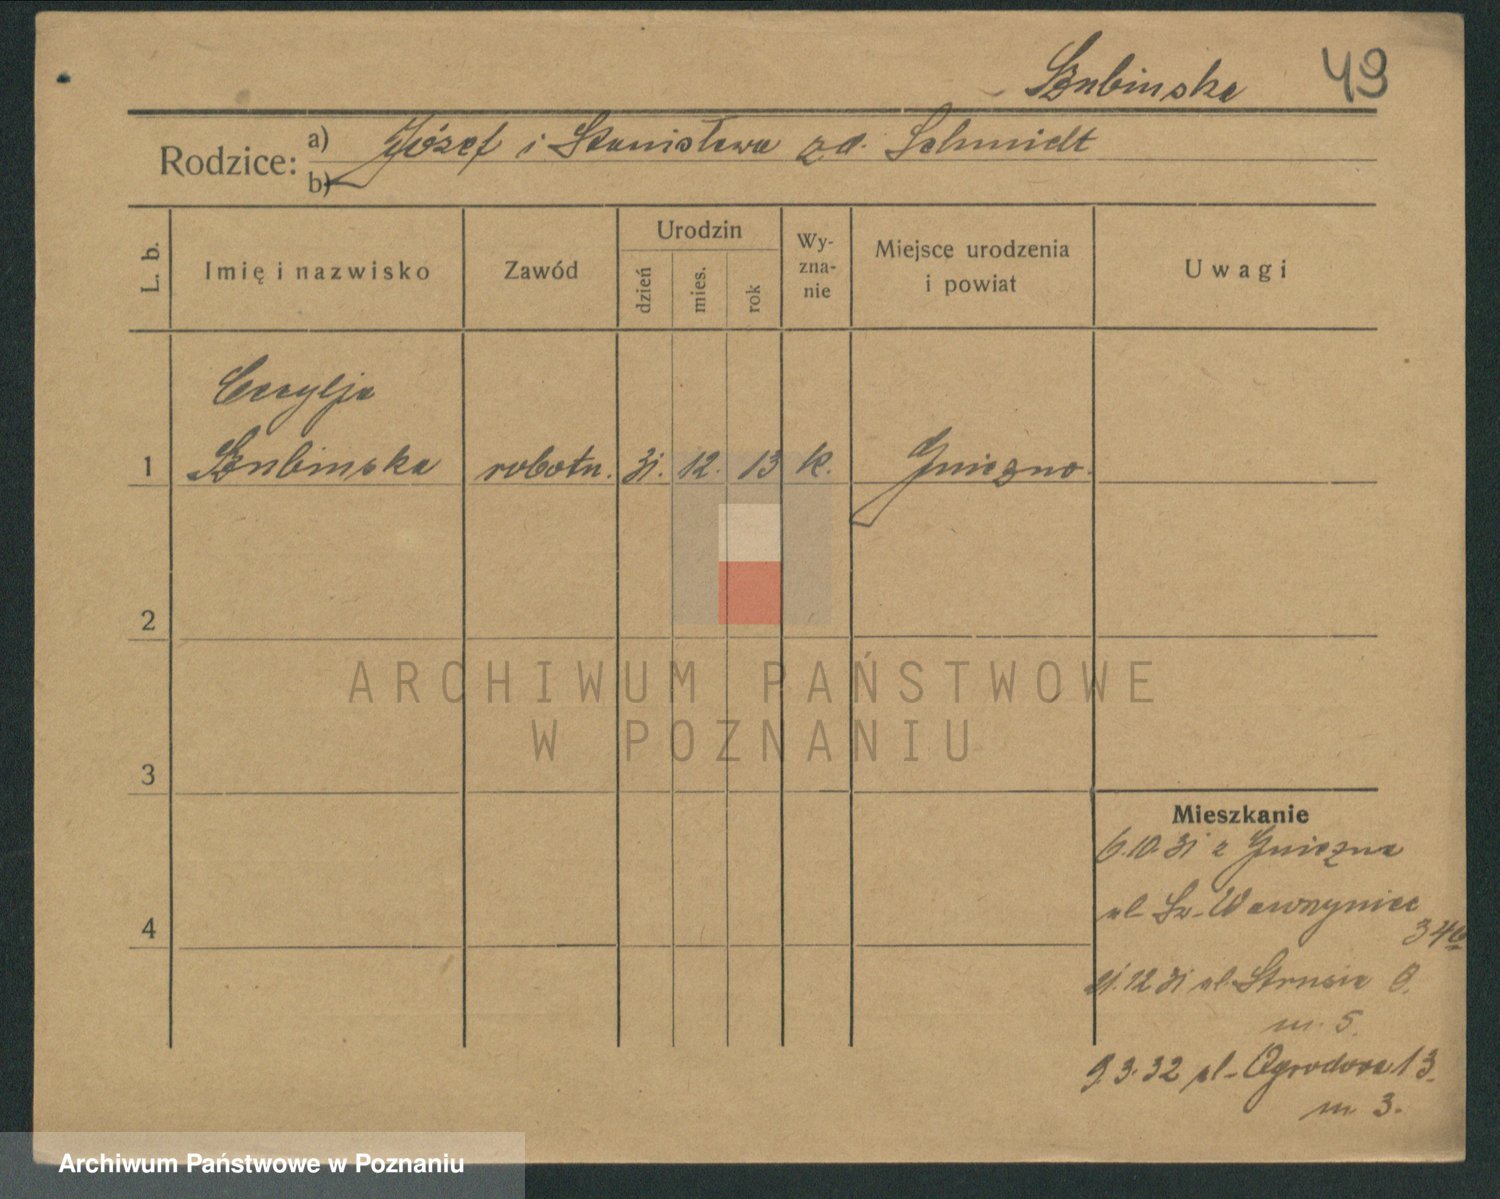 Szubinska 49
Rodzice: a) Józef i Stanisława zd. Schmidt
b)
L. b. Imię i nazwisko Zawód Urodzin dzień mies. rok Wyznanie Miejsce urodzenia i powiat Uwagi
Cecylja
1 Szubinska robotn. 31. 12. 13 k. Gniezno.
2
ARCHIWUM PAŃSTWOWE
W POZNANIU
3
Mieszkanie
6.10.31 z Gniezna
ul. Św. Wawrzyniec
34
4
21.12.31 ul. Strusia
m. 5.
9.3.32 ul. Ogrodowa 13.
m 3.
Archiwum Państwowe w Poznaniu